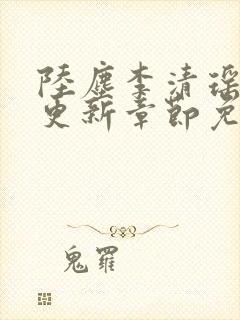 陸塵李清瑤
更新章節免
鬼羅